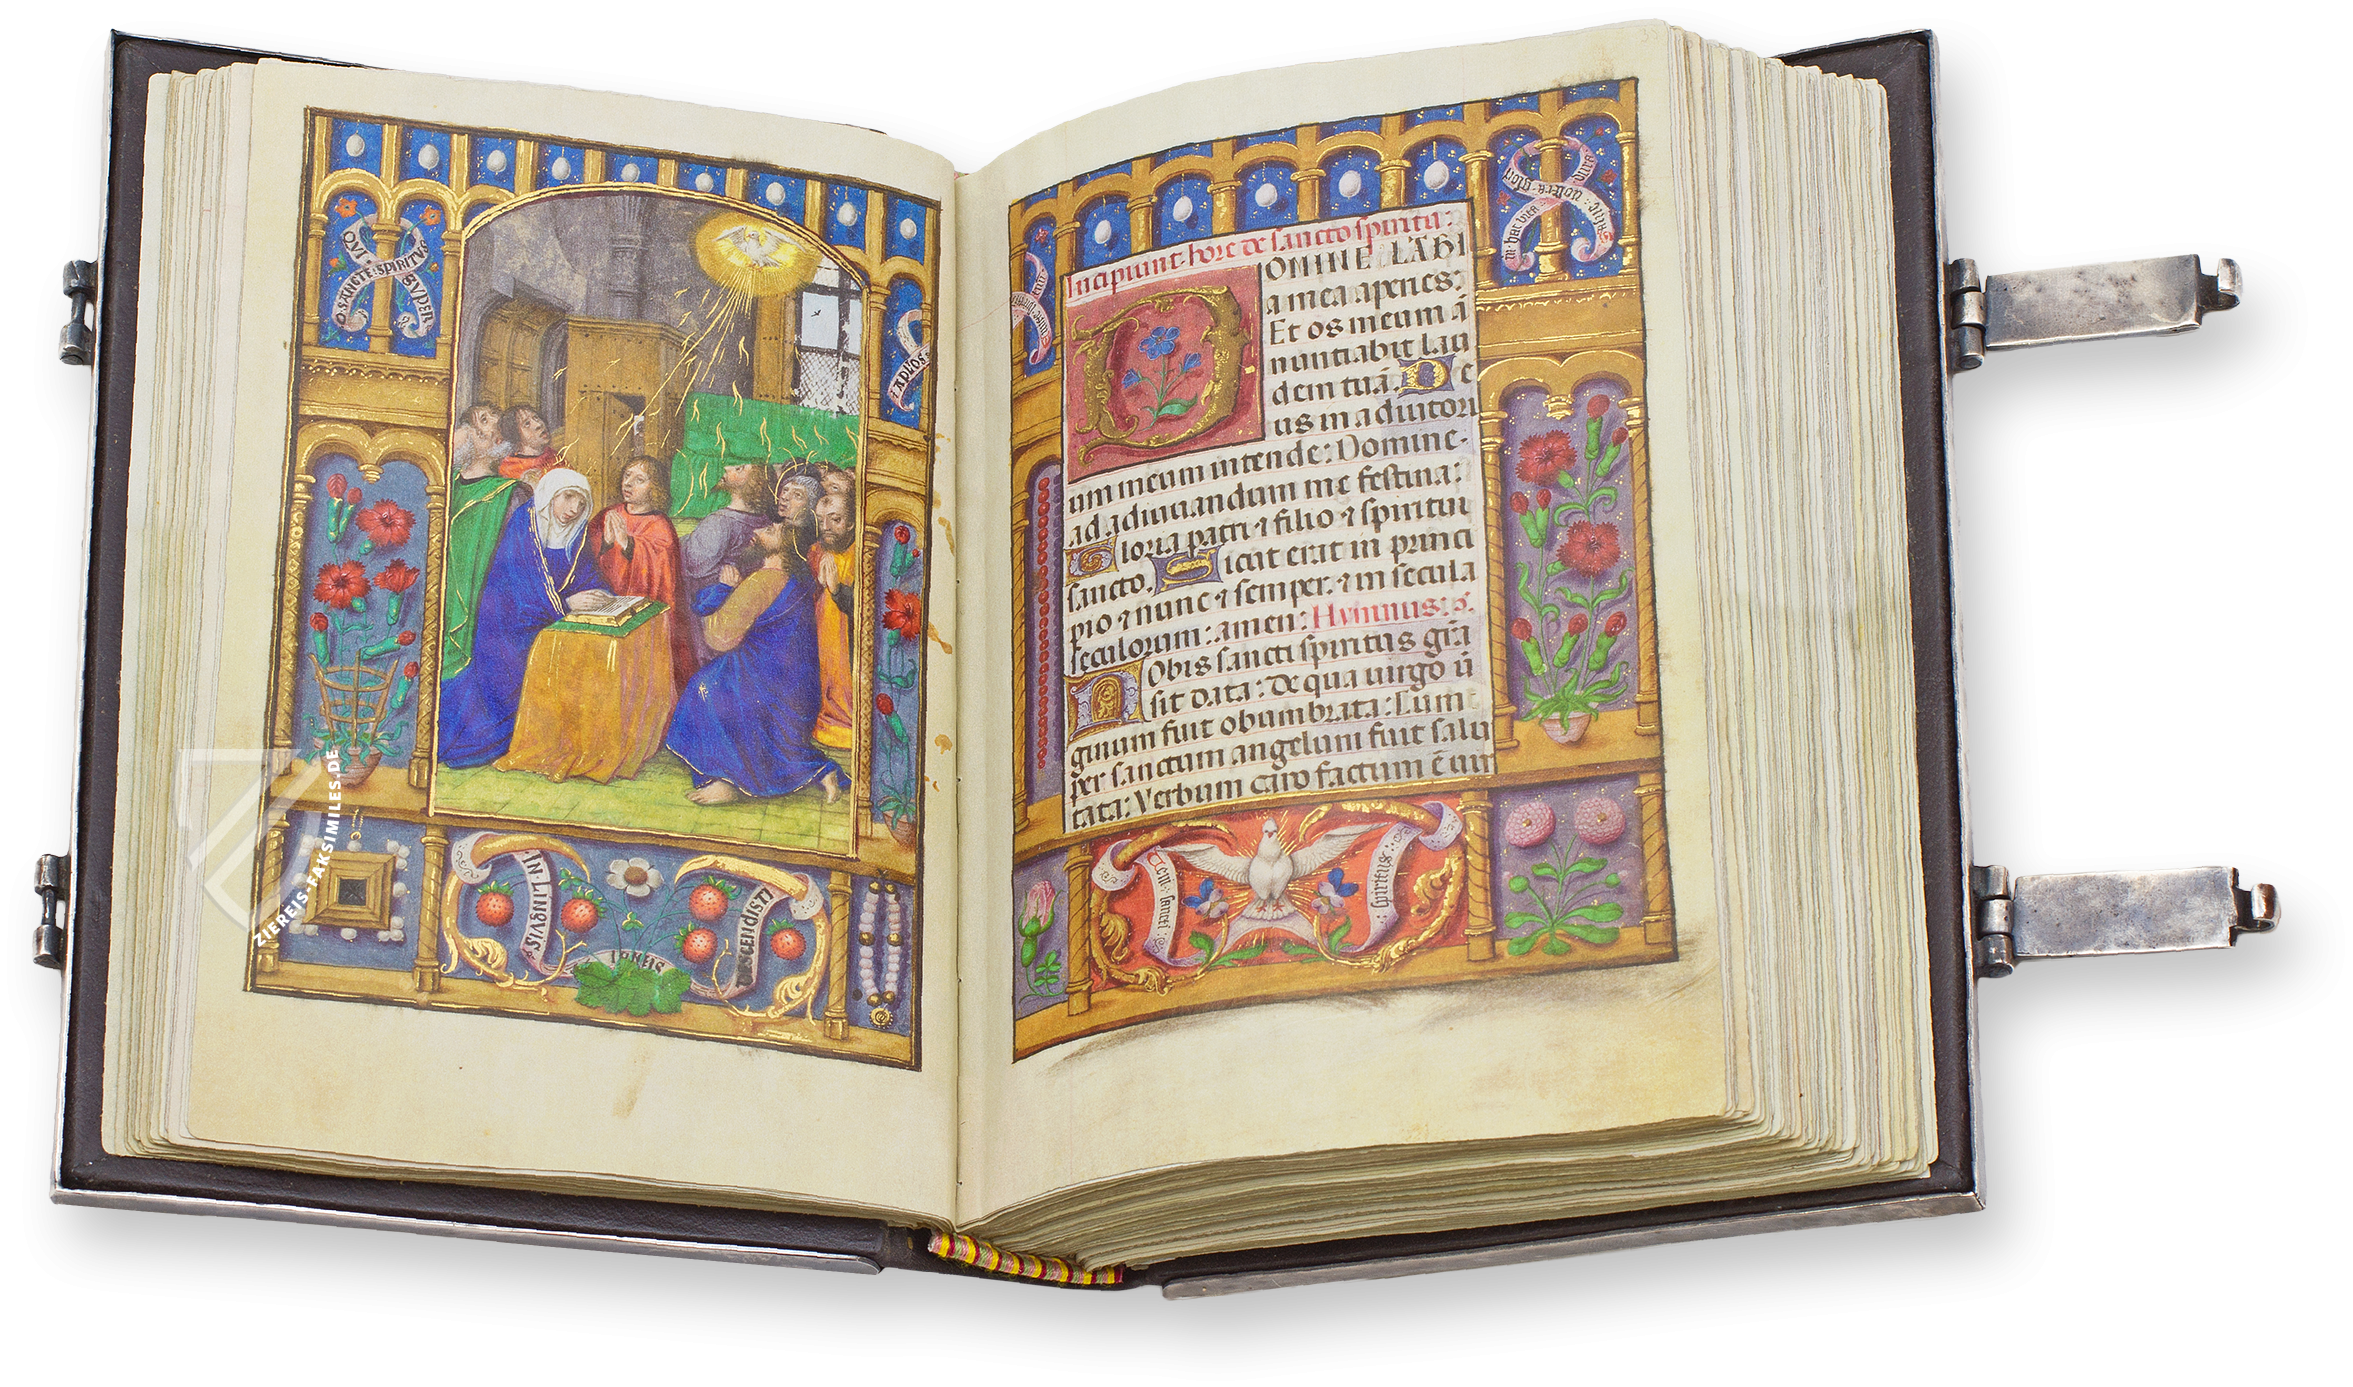 QVI
O·SANCTE·SPIRITVS
SVPER
APLOS
IN·LINGVIS
IGNEIS
DISCENDISTI
Incipiunt·hore de sancto spiritu:
DOMINE LABI
a mea aperies:
Et os meum ā
nuntiabit lau
dem tuā. De
us in adiutori
um meum intende: Domine·
ad adiuuandum me festina:
Gloria patri ⁊ filio ⁊ spiritui
sancto. Sicut erat in princi
pio ⁊ nunc ⁊ semper. ⁊ in secula
seculorum: amen: Hymnus:
Nobis sancti spiritus gr̄a
sit data: De qua uirgo ū
ginum fuit obumbrata: Cum
per sanctum angelum fuit salu
tata: Verbum caro factum ē uir
in hac vita
sancti
spiritus
ZIEREIS-FAKSIMILES.DE